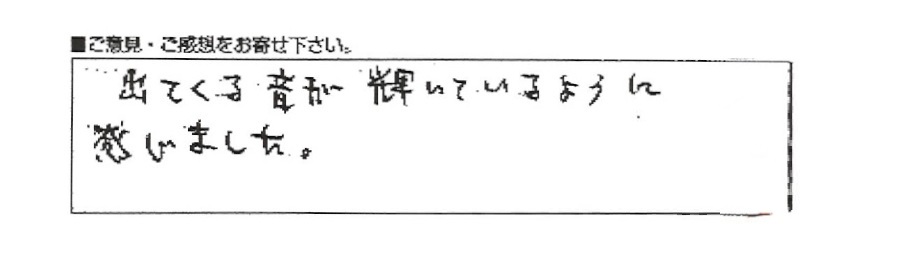 ■ご意見・ご感想をお寄せ下さい。
出てくる音が輝いているように
感じました。